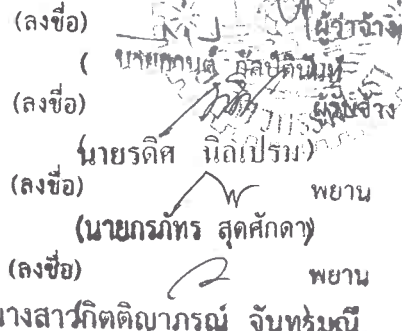 (ลงชื่อ) ผู้ว่าจ้าง
(
(ลงชื่อ) ผู้รับจ้าง
(นายรดิศ นิลเปรม)
(ลงชื่อ) พยาน
(นายกรภัทร สุดศักดา)
(ลงชื่อ) พยาน
นางสาวกิตติญาภรณ์ จันทรมณี